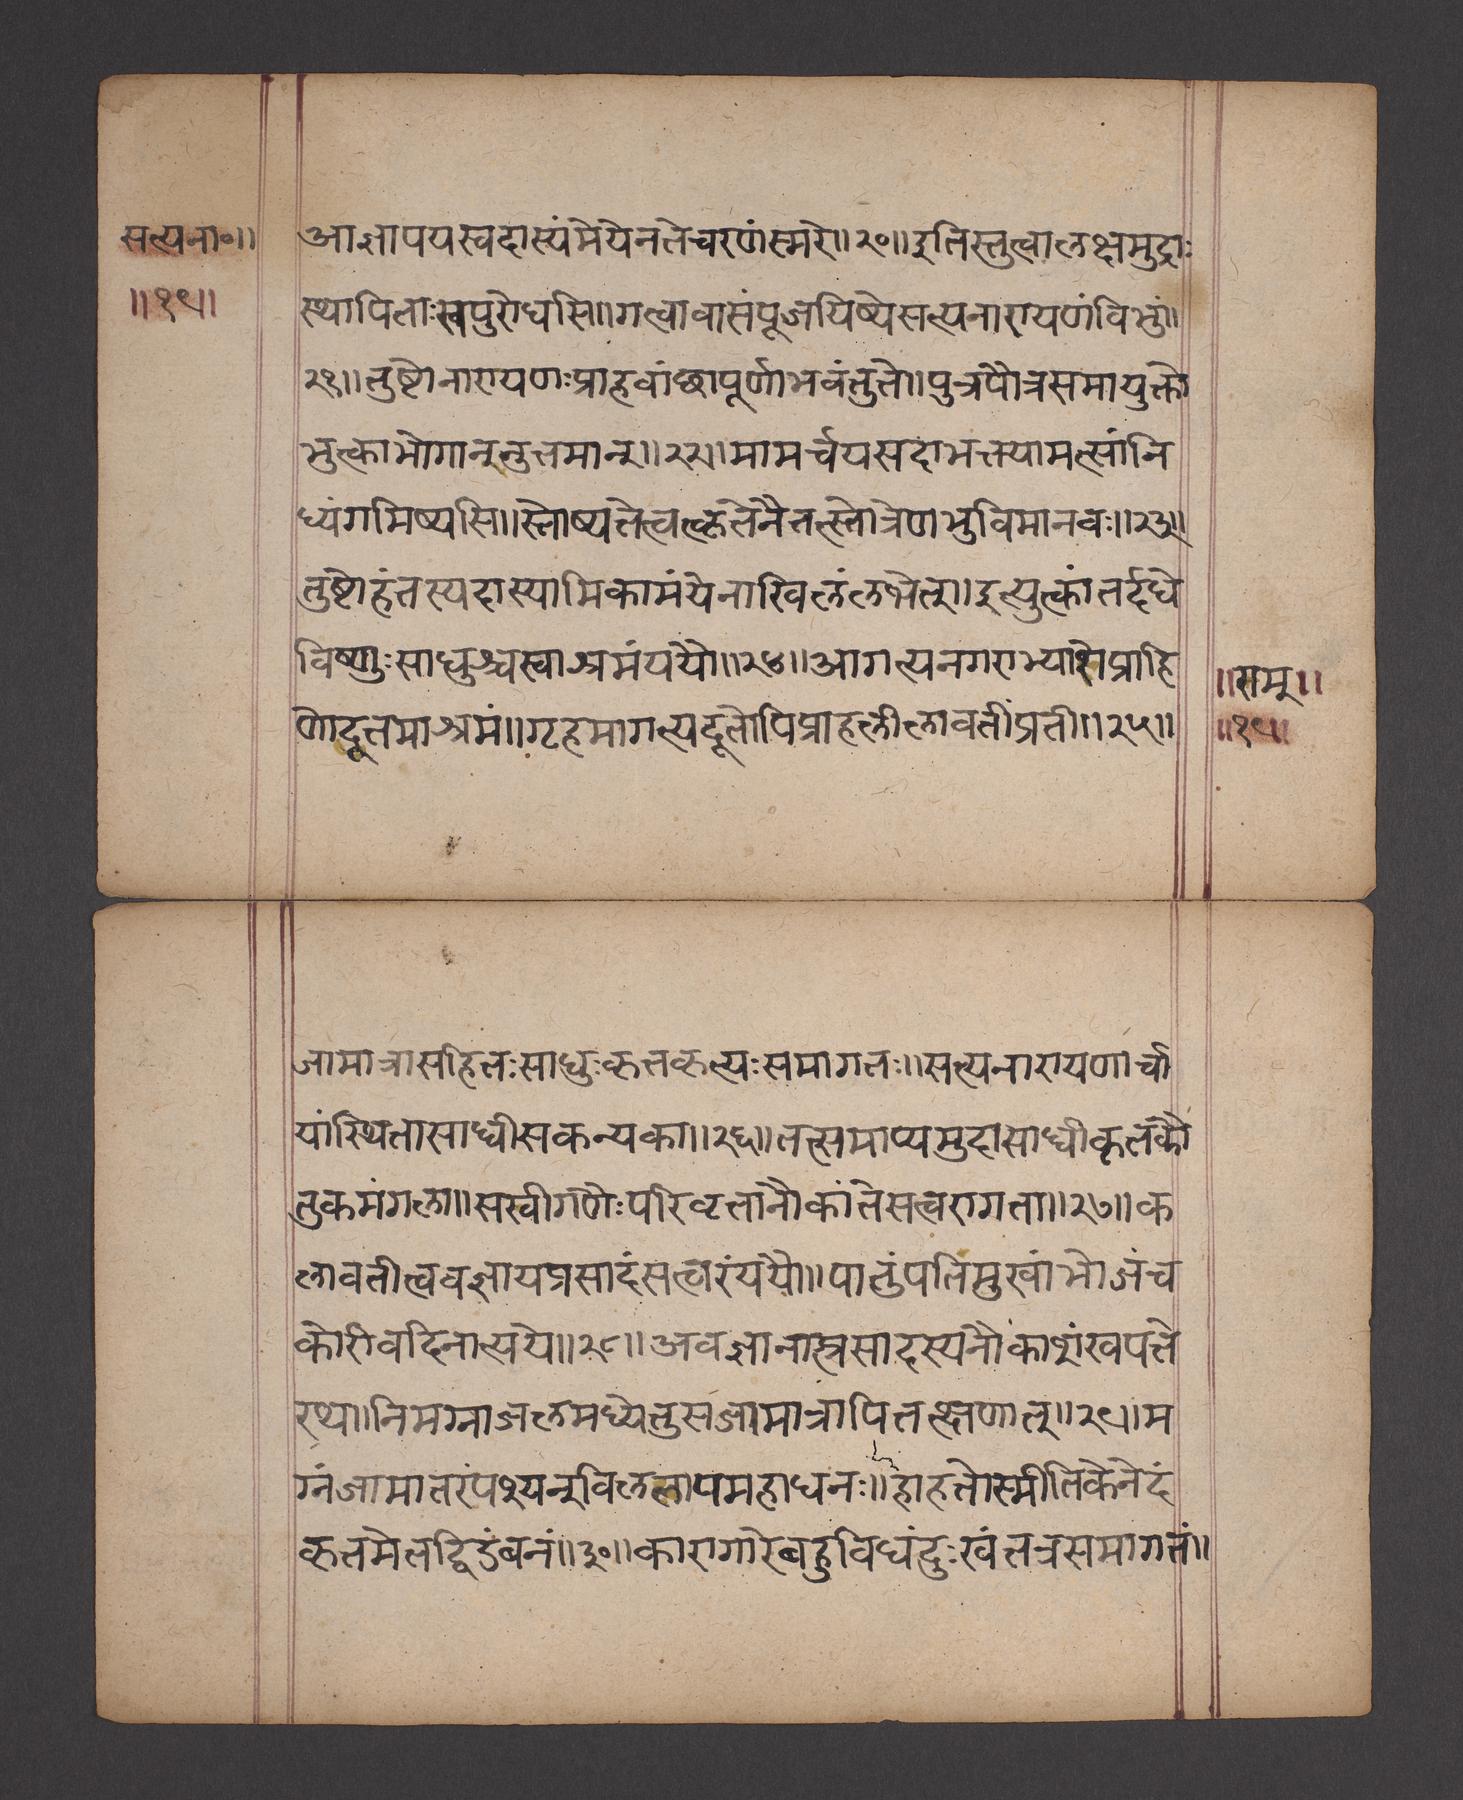 सत्यना॰॥
॥१९॥
आज्ञापयस्वदास्यंमेयेनतेचरणंस्मरे॥२०॥इतिस्तुत्वालक्षमुद्राः
स्थापिताःस्वपुरोधसि॥गत्वावासंपूजयिष्येसत्यनारायणंविभुं॥
२१॥तुष्टोनारायणःप्राहवांछापूर्णाभवंतुते॥पुत्रपौत्रसमायुक्तो
भुत्काभोगाननुत्तमान्॥२२॥मामर्चयसदाभक्तयामत्सांनि
ध्यंगमिष्यसि॥स्तोष्यतेत्वत्कृतेनैतत्स्तोत्रेणभुविमानवः॥२३॥
तुष्टोहंतस्यदास्यामिकामंयेनाखिलंलभेत्॥इत्युत्कांतर्दधे
विष्णुःसाधुश्चस्वाश्रमंययौ॥२४॥आगत्यनगराभ्याशेप्राहि
णोद्दूतमाश्रमं॥गृहमागत्यदूतोपिप्राहलीलावतींप्रती॥२५॥
॥सम्॥
॥१९॥
जामात्रासहितःसाधुःकृतकृत्यःसमागतः॥सत्यनारायणार्चा
यांस्थितासाध्वीसकन्यका॥२६॥तत्समाप्यमुदासाध्वीकृतकौ
तुकमंगला॥सखीगणैःपरिवृतानौकांतेसत्वरागता॥२७॥क
लावतीत्ववज्ञायप्रसादंसत्वरंययौ॥पातुंपतिमुखांभोजंच
कोरीवदिनात्यये॥२८॥अवज्ञानात्प्रसादस्यनौकाशंखपते
रथ॥निमग्नाजलमध्येतुसजामात्रापितत्क्षणात्॥२९॥म
ग्नंजामातरंपश्यन्विललापमहाधनः॥हाहतोस्मीतिकेनेदं
कृतमेतद्विडंबनं॥३०॥कारागारेबहुविधंदुःखंतत्रसमागतं॥